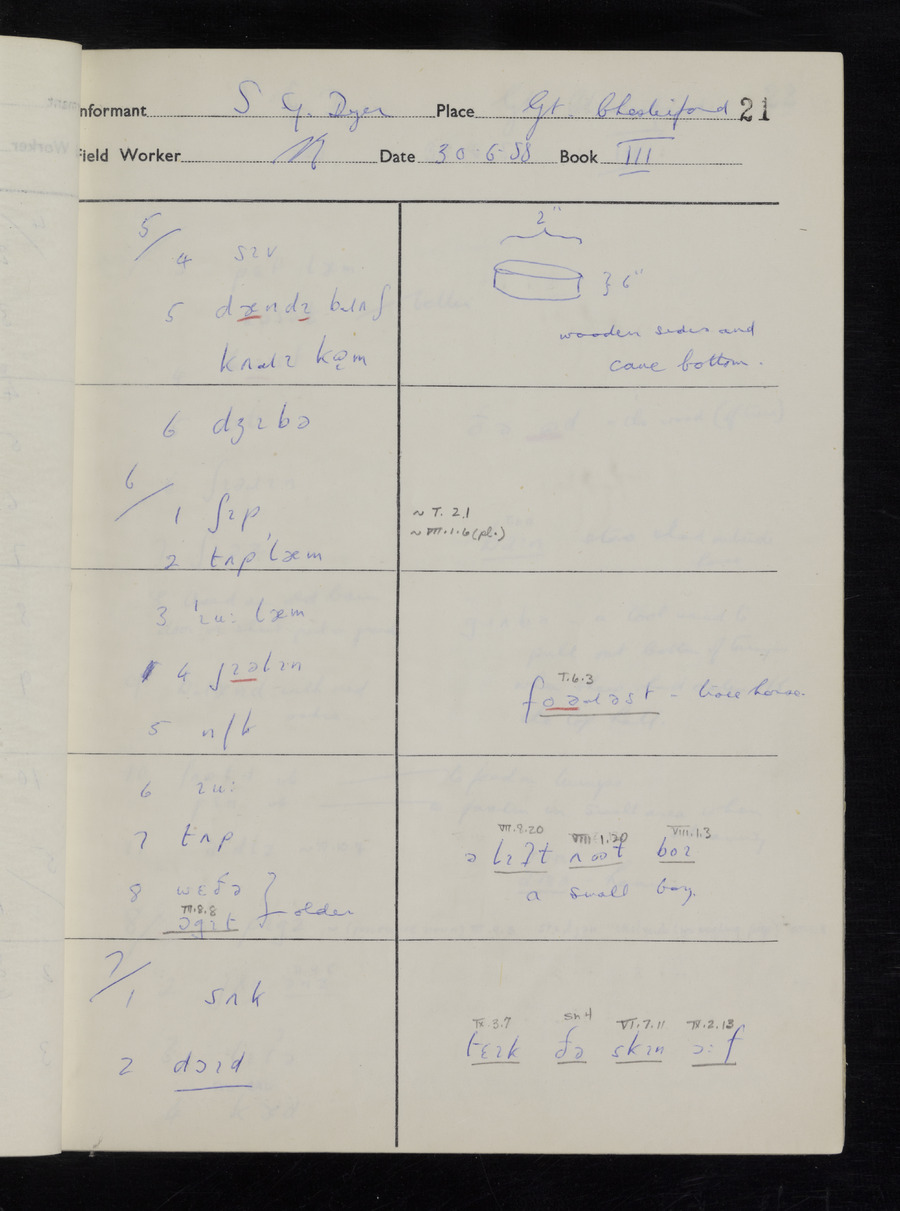 Informant S G. Dyer Place Gt. Chesterford 21
Field Worker Date 30-6-58 Book III
5/
4 sɪv
5 dændɪ
6 dʒɪbə
6/
1 ʃɪp
2 tʌp'læm
3 'ɪu: læm
4 ʃɪəlɪn
5 n/k
6 ɪu:
7 tʌp
8 wɛðə
III.8.8
ɔgɪt } older
7/
1 sʌk
2
2"
} 6"
wooden sides and
cane bottom.
~ T. 2.1
~ VIII.1.6 (pl.)
T.6.3
- trace horse.
VII.8.20 VIII.1.20 VIII.1.3
ə lɪʔt bɔɪ
a small boy.
IX.3.7 sn4 VI.7.11 IV.2.13
tɛɪk ðə skɪn ɔ:f